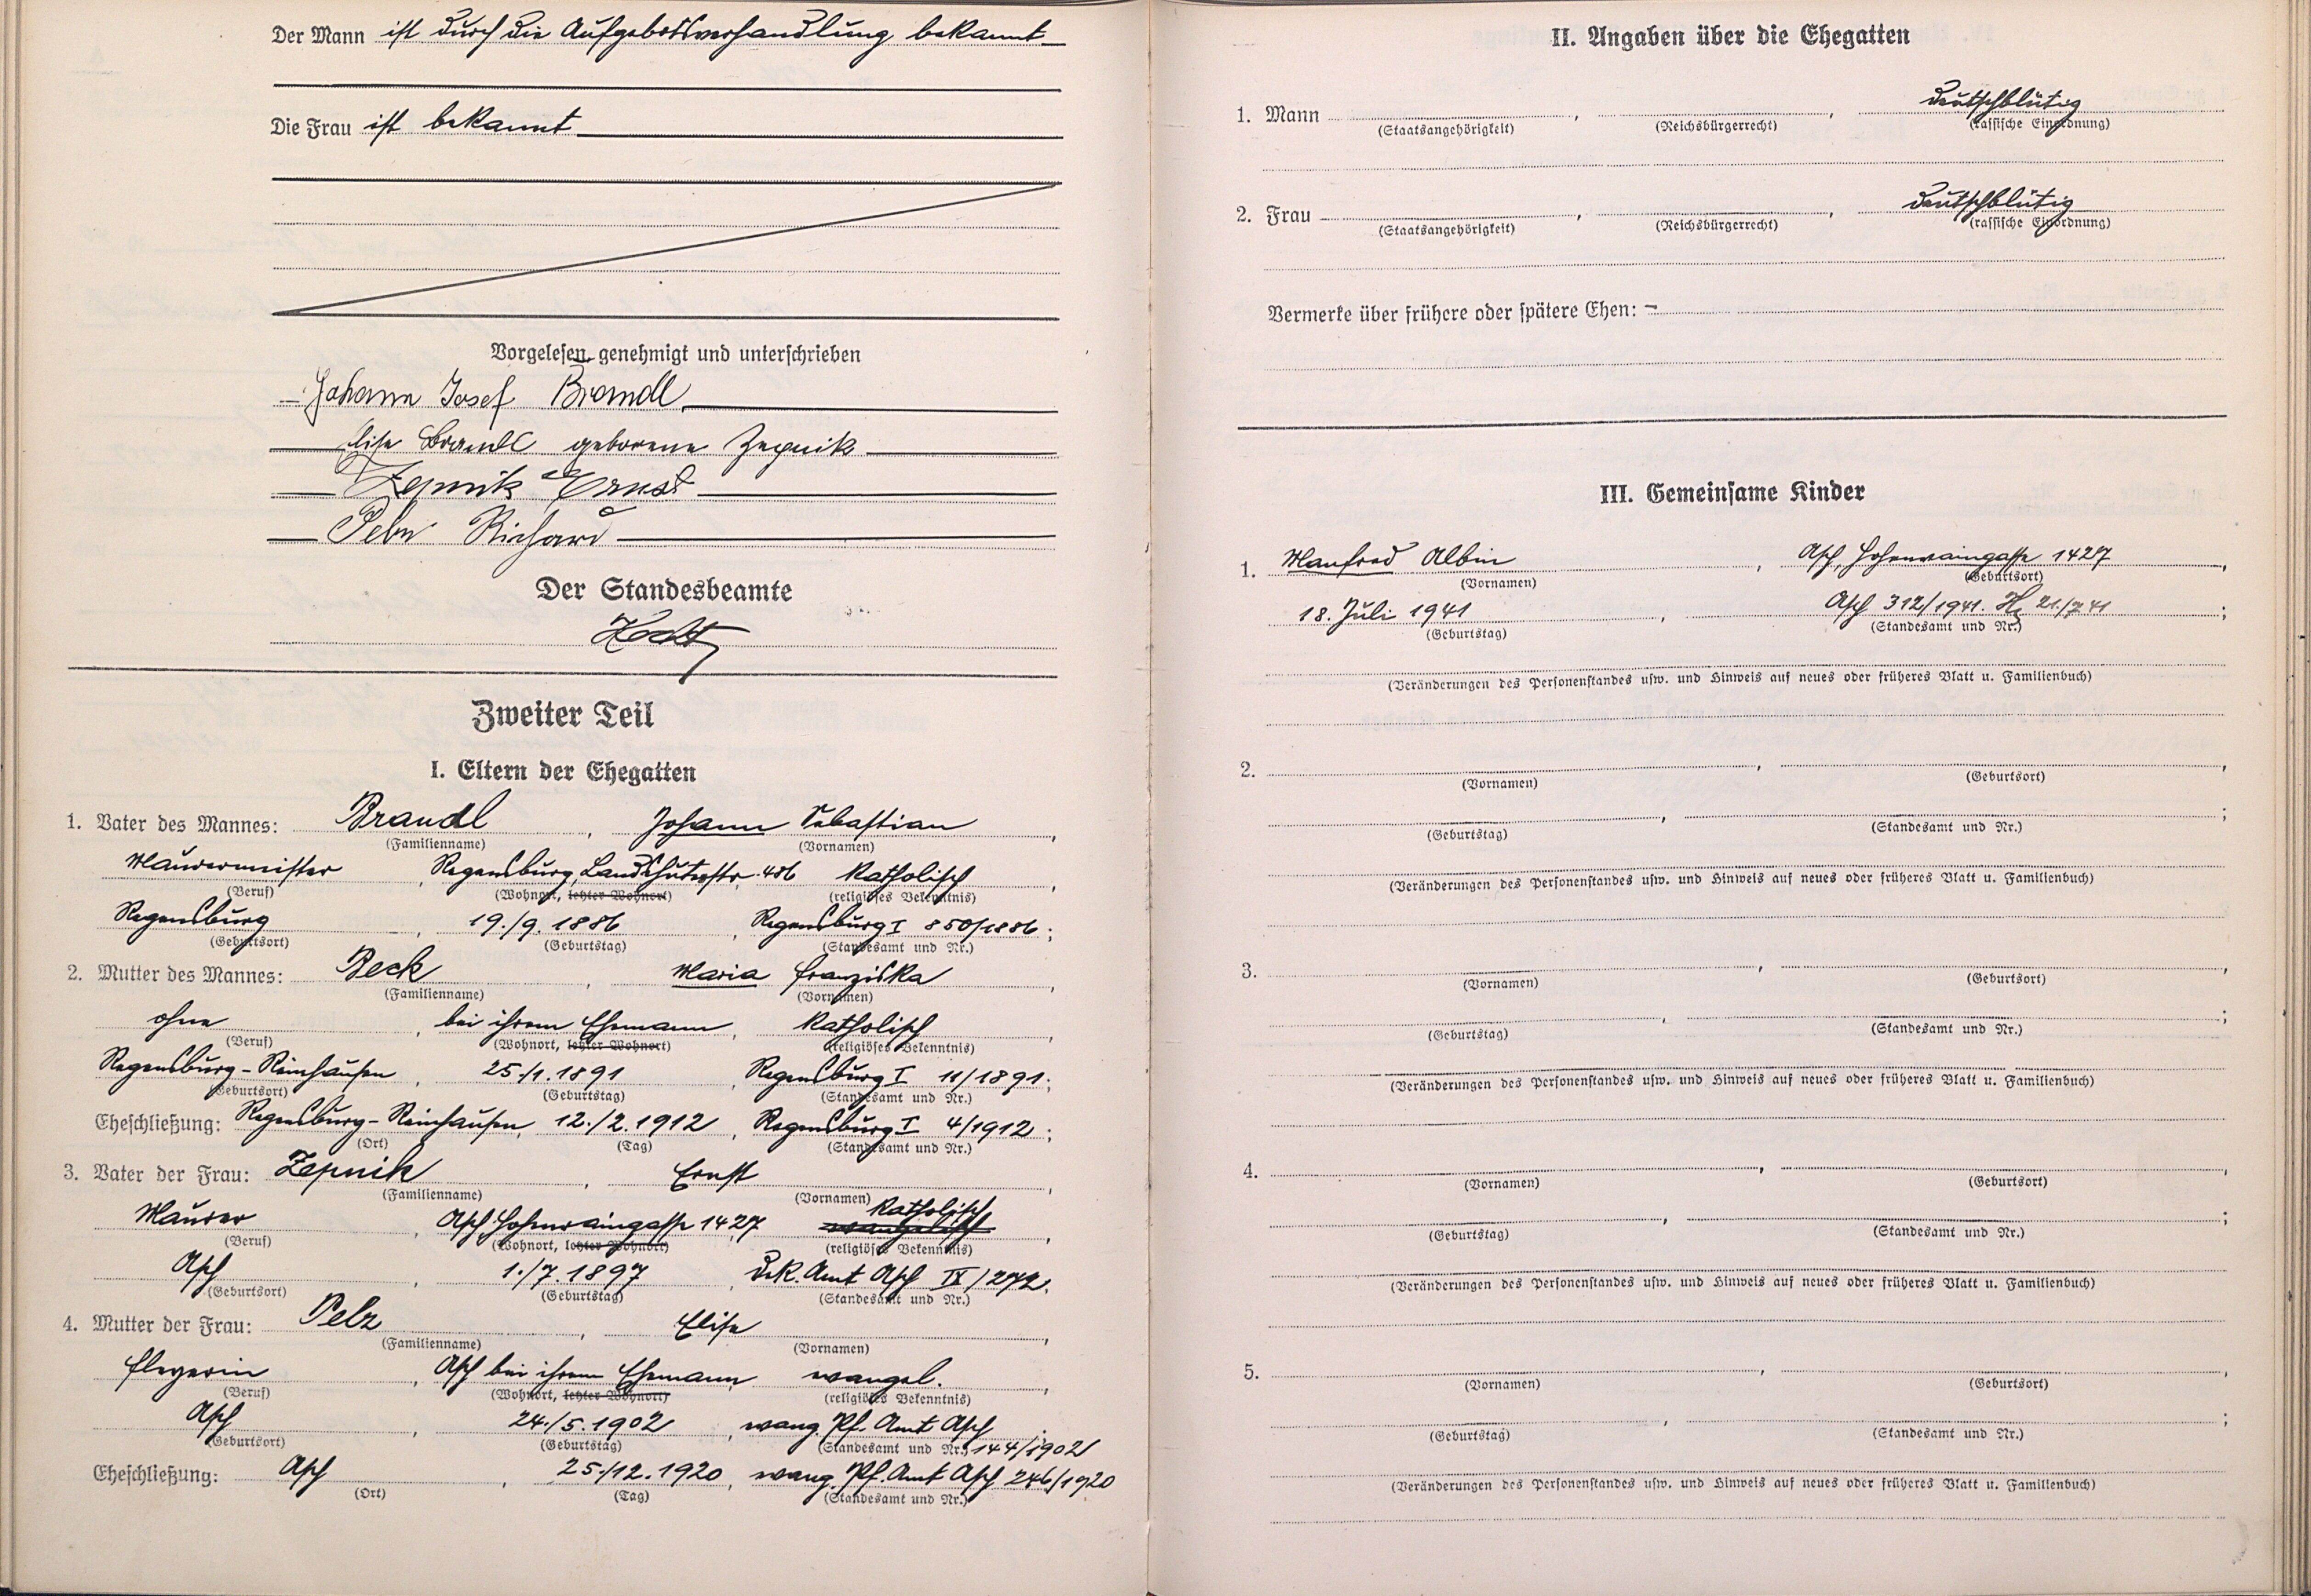 Der Mann ist durch die Aufgebotsverhandlung bekannt
Die Frau ist bekannt
Vorgelesen, genehmigt und unterschrieben
Johann Josef Brandl
Elise Brandl geborene Zepnik
Zepnik Ernst
Richard
Der Standesbeamte
Zweiter Teil
I. Eltern der Ehegatten
1. Vater des Mannes: Brandl, Johann Sebastian,
(Familienname) (Vornamen)
Maurermeister, Regensburg, Landshuterstr. 486 katholisch,
(Beruf) (Wohnort, letzter Wohnort) (religiöses Bekenntnis)
Regensburg, 19./9. 1886, Regensburg I 850/1886;
(Geburtsort) (Geburtstag) (Standesamt und Nr.)
2. Mutter des Mannes: Beck, Maria Franziska,
(Familienname) (Vornamen)
ohne, bei ihrem Ehemann, katholisch,
(Beruf) (Wohnort, letzter Wohnort) (religiöses Bekenntnis)
Regensburg-Reinhausen, 25./1. 1891, Regensburg I 11/1891;
(Geburtsort) (Geburtstag) (Standesamt und Nr.)
Eheschließung: Regensburg-Reinhausen, 12./2. 1912, Regensburg I 4/1912;
(Ort) (Tag) (Standesamt und Nr.)
3. Vater der Frau: Zepnik, Ernst,
(Familienname) (Vornamen)
Maurer, Asch, Hohenraingasse 1427 katholisch evangelisch,
(Beruf) (Wohnort, letzter Wohnort) (religiöses Bekenntnis)
Asch, 1./7. 1897, Dek. Amt Asch IX/272.
(Geburtsort) (Geburtstag) (Standesamt und Nr.)
4. Mutter der Frau: Pelz, Elise,
(Familienname) (Vornamen)
Asch bei ihrem Ehemann, evangel.,
(Beruf) (Wohnort, letzter Wohnort) (religiöses Bekenntnis)
Asch, 24./5. 1902, evang. Pf. Amt Asch
(Geburtsort) (Geburtstag) (Standesamt und Nr.) 144/1902
Eheschließung: Asch, 25./12. 1920, evang. Pf. Amt Asch 246/1920
(Ort) (Tag) (Standesamt und Nr.)
II. Angaben über die Ehegatten
1. Mann, , deutschblütig
(Staatsangehörigkeit) (Reichsbürgerrecht) (rassische Einordnung)
2. Frau, , deutschblütig
(Staatsangehörigkeit) (Reichsbürgerrecht) (rassische Einordnung)
Vermerke über frühere oder spätere Ehen: –
III. Gemeinsame Kinder
1. Manfred Albin, Asch, Hohenraingasse 1427,
(Vornamen) (Geburtsort)
18. Juli 1941, Asch 312/1941. 21./7 41;
(Geburtstag) (Standesamt und Nr.)
(Veränderungen des Personenstandes usw. und Hinweis auf neues oder früheres Blatt u. Familienbuch)
2. , ,
(Vornamen) (Geburtsort)
, ;
(Geburtstag) (Standesamt und Nr.)
(Veränderungen des Personenstandes usw. und Hinweis auf neues oder früheres Blatt u. Familienbuch)
3. , ,
(Vornamen) (Geburtsort)
, ;
(Geburtstag) (Standesamt und Nr.)
(Veränderungen des Personenstandes usw. und Hinweis auf neues oder früheres Blatt u. Familienbuch)
4. , ,
(Vornamen) (Geburtsort)
, ;
(Geburtstag) (Standesamt und Nr.)
(Veränderungen des Personenstandes usw. und Hinweis auf neues oder früheres Blatt u. Familienbuch)
5. , ,
(Vornamen) (Geburtsort)
, ;
(Geburtstag) (Standesamt und Nr.)
(Veränderungen des Personenstandes usw. und Hinweis auf neues oder früheres Blatt u. Familienbuch)